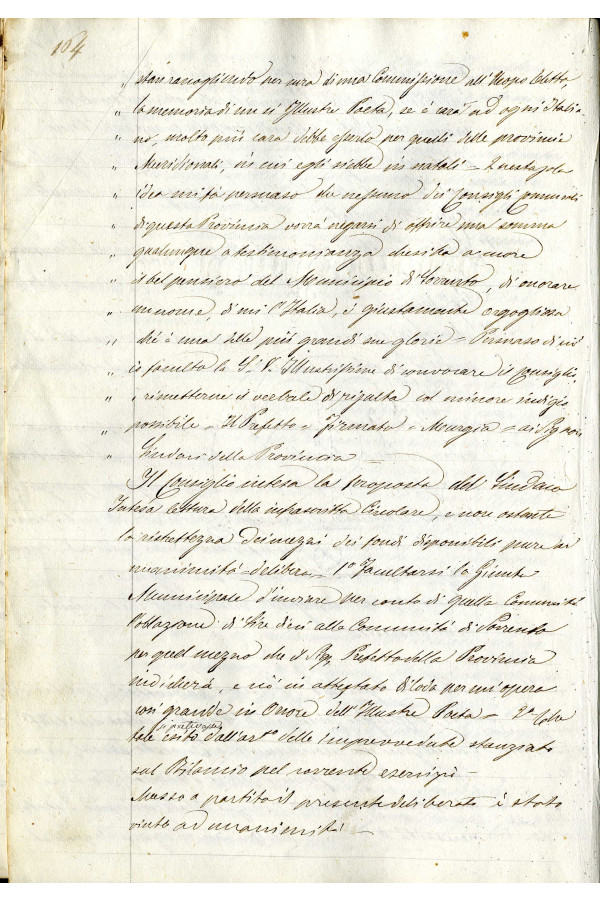 164
stan raccogliendo per cura di una Commissione all'Uopo eletta,
" la memoria di un sì Illustre Poeta, se è cara ad ogni Italia
" no, molto più cara debbe esserlo per quelli delle provincie
" Meridionali, in cui egli ebbe in natali = Questa sola
" idea mi fà persuaso che nessuno dei Consigli Comunali
" di questa Provincia vorrà negarsi di offrire una somma
" qualunque a testimonianza che sia a cuore
" il bel pensiero del Municipio di Sorrento, di onorare
" un nome, di cui l'Italia, è giustamente orgogliosa
" chè è una delle più grandi sue glorie = Persuaso di ciò
" io faculto la S. V. Illustrissima di convocare il Consiglio,
" e rimetterne il verbale di risulta col minore indugio
" possibile = Il Prefetto = firmato = Murgia = ai Signori
" Sindaci della Provincia =
Il Consiglio intesa la proposta del Sindaco
Intesa lettura della infrascritta Circolare, e non ostante
la ristrettezza dei mezzi dei fondi disponibili pure ad
unanimità = delibera = 1° Facultarsi la Giunta
Municipale d'inviare per conto di quella Comunità
l'oblazione di lire dieci alla Comunità di Sorrento
per quel mezzo che il Reg. Prefetto della Provincia
indicherà, e ciò in attestato di loda per un'opera
così grande in Onore dell'Illustre Poeta = 2° Che
tale esito dall'art.° delle imprevvedute stanziato
sul Bilancio pel corrente esercizio =
Messo a partito il presente deliberato è stato
vinto ad unanimità =